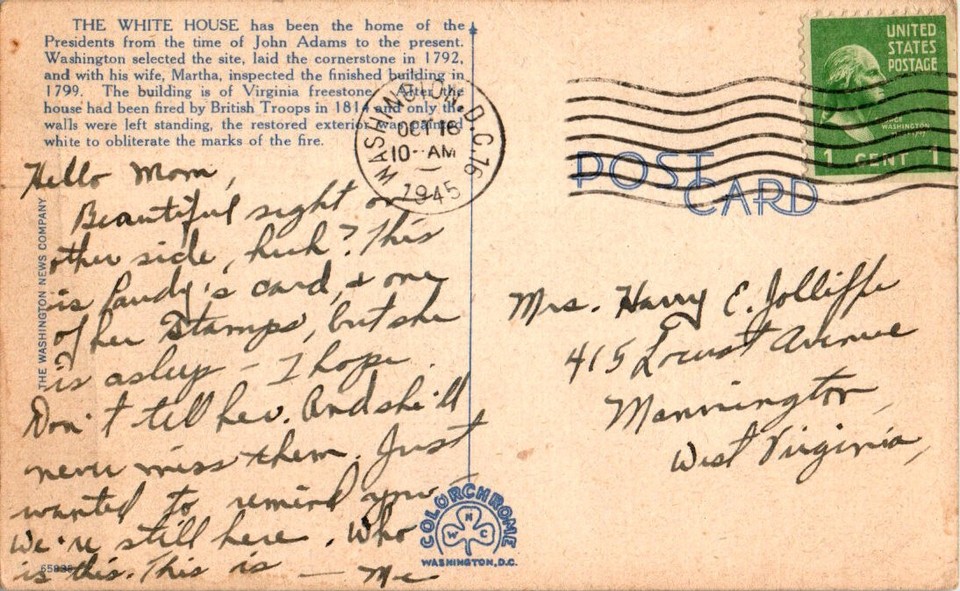 THE WHITE HOUSE has been the home of the
Presidents from the time of John Adams to the present.
Washington selected the site, laid the cornerstone in 1792,
and with his wife, Martha, inspected the finished building in
1799. The building is of Virginia freestone. After the
house had been fired by British Troops in 1814 and only the
walls were left standing, the restored exterior was painted
white to obliterate the marks of the fire.
WASHINGTON, D.C. 16
OCT 16
10-AM
1945
UNITED
STATES
POSTAGE
WASHINGTON
1 CENT 1
POST
CARD
THE WASHINGTON NEWS COMPANY
Hello Mom,
Beautiful sight on
other side, huh? This
is Pandy's card, & one
of her stamps, but she
is asleep - I hope.
Don't tell her. And she'll
never miss them. Just
wanted to remind you
We're still here. Who
is this. This is — Me
Mrs. Harry E. Jolliffe
415 Locust Avenue
Mannington,
West Virginia,
COLORCHROME
W N C
WASHINGTON, D.C.